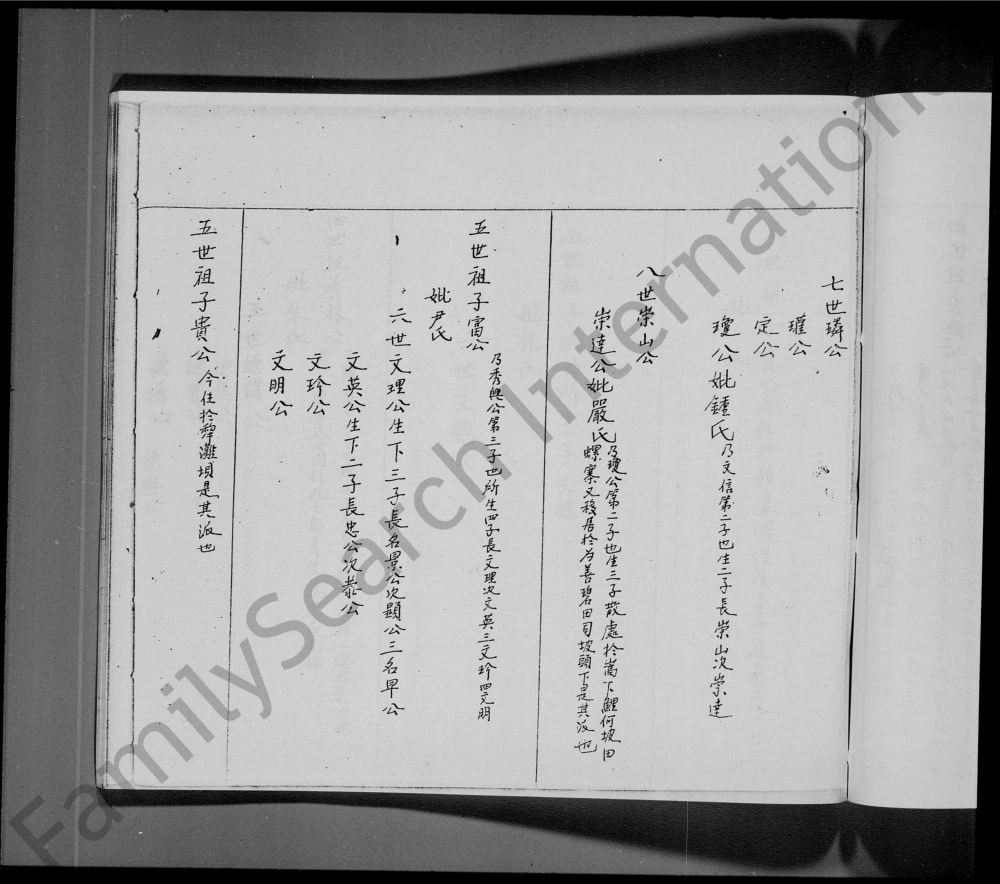 七世璘公
瓘公
定公
瓊公妣鍾氏乃文信第二子也生二子長崇山次崇達
八世崇山公
崇達公妣嚴氏乃瓊公第二子也生三子散處於嵩下鯉何坡田
螺寨又移居於為善碧田司坡頭下是其派也
五世祖子富公乃秀興公第三子也所生四子長文理次文英三文珍四文明
妣尹氏
六世文理公生下三子長名景公次顯公三名早公
文英公生下二子長忠公次泰公
文珍公
文明公
五世祖子貴公今住於犂灘垻是其派也
FamilySearch International